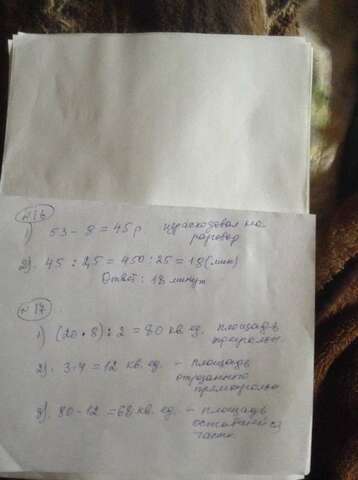 №16
1) 53 - 8 = 45р израсходовал на
разговор
2). 45 : 2,5 = 450 : 25 = 18 (мин)
Ответ: 18 минут
№17
1) (20 • 8) : 2 = 80 кв. ед. площадь
2). 3•4 = 12 кв. ед. - площадь
отрезанного
прямоугольн
3). 80 - 12 = 68 кв. ед. - площадь
оставшейся
части